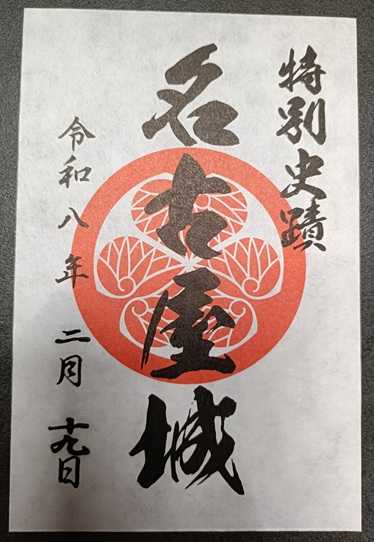 特別史蹟
名古屋城
令和八年 二月 十九日